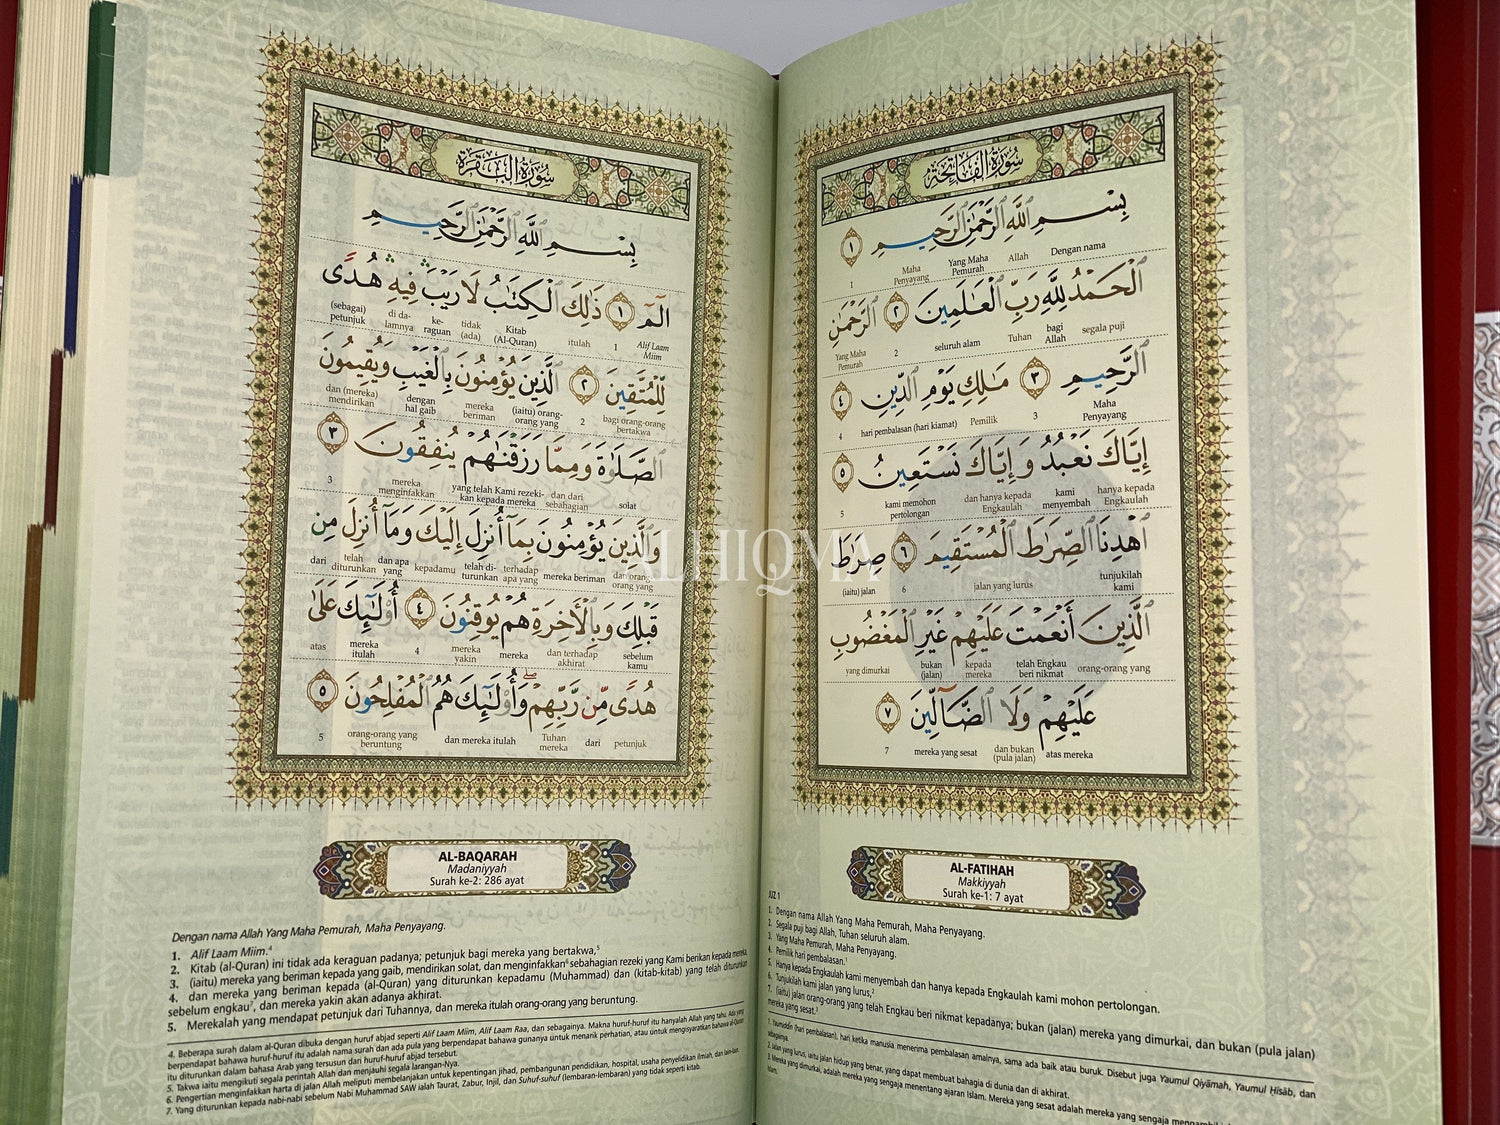 سُورَةُ الْفَاتِحَةِ
بِسْمِ ٱللَّهِ ٱلرَّحْمَٰنِ ٱلرَّحِيمِ ١
Dengan nama Allah Yang Maha Pemurah Maha Penyayang 1
ٱلْحَمْدُ لِلَّهِ رَبِّ ٱلْعَٰلَمِينَ ٢ ٱلرَّحْمَٰنِ
segala puji bagi Allah Tuhan seluruh alam 2 Yang Maha Pemurah
ٱلرَّحِيمِ ٣ مَٰلِكِ يَوْمِ ٱلدِّينِ ٤
Maha Penyayang 3 Pemilik hari pembalasan (hari kiamat) 4
إِيَّاكَ نَعْبُدُ وَإِيَّاكَ نَسْتَعِينُ ٥
hanya kepada Engkaulah kami menyembah dan hanya kepada Engkaulah kami memohon pertolongan 5
ٱهْدِنَا ٱلصِّرَٰطَ ٱلْمُسْتَقِيمَ ٦ صِرَٰطَ
tunjukilah kami jalan yang lurus 6 (iaitu) jalan
ٱلَّذِينَ أَنْعَمْتَ عَلَيْهِمْ غَيْرِ ٱلْمَغْضُوبِ
orang-orang yang telah Engkau beri nikmat kepada mereka bukan (jalan) yang dimurkai
عَلَيْهِمْ وَلَا ٱلضَّآلِّينَ ٧
atas mereka dan bukan (pula jalan) mereka yang sesat 7
AL-FATIHAH
Makkiyyah
Surah ke-1: 7 ayat
JUZ 1
1. Dengan nama Allah Yang Maha Pemurah, Maha Penyayang.
2. Segala puji bagi Allah, Tuhan seluruh alam.
3. Yang Maha Pemurah, Maha Penyayang.
4. Pemilik hari pembalasan.1
5. Hanya kepada Engkaulah kami menyembah dan hanya kepada Engkaulah kami mohon pertolongan.
6. Tunjukilah kami jalan yang lurus,2
7. (iaitu) jalan orang-orang yang telah Engkau beri nikmat kepadanya; bukan (jalan) mereka yang dimurkai, dan bukan (pula jalan)
mereka yang sesat.3
1. Yaumiddin (hari pembalasan), hari ketika manusia menerima pembalasan amalnya, sama ada baik atau buruk. Disebut juga Yaumul Qiyāmah, Yaumul Ḥisāb, dan
sebagainya.
2. Jalan yang lurus, iaitu jalan hidup yang benar, yang dapat membuat bahagia di dunia dan di akhirat.
3. Mereka yang dimurkai, adalah mereka yang sengaja menentang ajaran Islam. Mereka yang sesat adalah mereka yang sengaja
Islam.
سُورَةُ الْبَقَرَةِ
بِسْمِ ٱللَّهِ ٱلرَّحْمَٰنِ ٱلرَّحِيمِ
الٓمٓ ١ ذَٰلِكَ ٱلْكِتَٰبُ لَا رَيْبَ ۛ فِيهِ ۛ هُدًى
Alif Laam Miim 1 itulah Kitab (Al-Quran) tidak (ada) ke-raguan di da-lamnya (sebagai) petunjuk
لِّلْمُتَّقِينَ ٢ ٱلَّذِينَ يُؤْمِنُونَ بِٱلْغَيْبِ وَيُقِيمُونَ
bagi orang-orang bertakwa 2 (iaitu) orang-orang yang mereka beriman dengan hal gaib dan (mereka) mendirikan
ٱلصَّلَوٰةَ وَمِمَّا رَزَقْنَٰهُمْ يُنفِقُونَ ٣
solat dan dari sebahagian yang telah Kami rezeki-kan kepada mereka mereka menginfakkan 3
وَٱلَّذِينَ يُؤْمِنُونَ بِمَآ أُنزِلَ إِلَيْكَ وَمَآ أُنزِلَ مِن
dan orang-orang yang mereka beriman terhadap apa yang telah di-turunkan kepadamu dan apa yang telah diturunkan dari
قَبْلِكَ وَبِٱلْأَخِرَةِ هُمْ يُوقِنُونَ ٤ أُو۟لَٰٓئِكَ عَلَىٰ
sebelum kamu dan terhadap akhirat mereka mereka yakin 4 mereka itulah atas
هُدًى مِّن رَّبِّهِمْ ۖ وَأُو۟لَٰٓئِكَ هُمُ ٱلْمُفْلِحُونَ ٥
petunjuk dari Tuhan mereka dan mereka itulah orang-orang yang beruntung 5
AL-BAQARAH
Madaniyyah
Surah ke-2: 286 ayat
Dengan nama Allah Yang Maha Pemurah, Maha Penyayang.
1. Alif Laam Miim.4
2. Kitab (al-Quran) ini tidak ada keraguan padanya; petunjuk bagi mereka yang bertakwa,5
3. (iaitu) mereka yang beriman kepada yang gaib, mendirikan solat, dan menginfakkan6 sebahagian rezeki yang Kami berikan kepada mereka,
4. dan mereka yang beriman kepada (al-Quran) yang diturunkan kepadamu (Muhammad) dan (kitab-kitab) yang telah diturunkan
sebelum engkau7, dan mereka yakin akan adanya akhirat.
5. Merekalah yang mendapat petunjuk dari Tuhannya, dan mereka itulah orang-orang yang beruntung.
4. Beberapa surah dalam al-Quran dibuka dengan huruf abjad seperti Alif Laam Miim, Alif Laam Raa, dan sebagainya. Makna huruf-huruf itu hanyalah Allah yang tahu. Ada yang
berpendapat bahawa huruf-huruf itu adalah nama surah dan ada pula yang berpendapat bahawa gunanya untuk menarik perhatian, atau untuk mengisyaratkan bahawa al-Quran
itu diturunkan dalam bahasa Arab yang tersusun dari huruf-huruf abjad tersebut.
5. Takwa iaitu mengikuti segala perintah Allah dan menjauhi segala larangan-Nya.
6. Pengertian menginfakkan harta di jalan Allah meliputi membelanjakan untuk kepentingan jihad, pembangunan pendidikan, hospital, usaha penyelidikan ilmiah, dan lain-lain.
7. Yang diturunkan kepada nabi-nabi sebelum Nabi Muhammad SAW ialah Taurat, Zabur, Injil, dan Suhuf-suhuf (lembaran-lembaran) yang tidak seperti kitab.
ALHIQMA